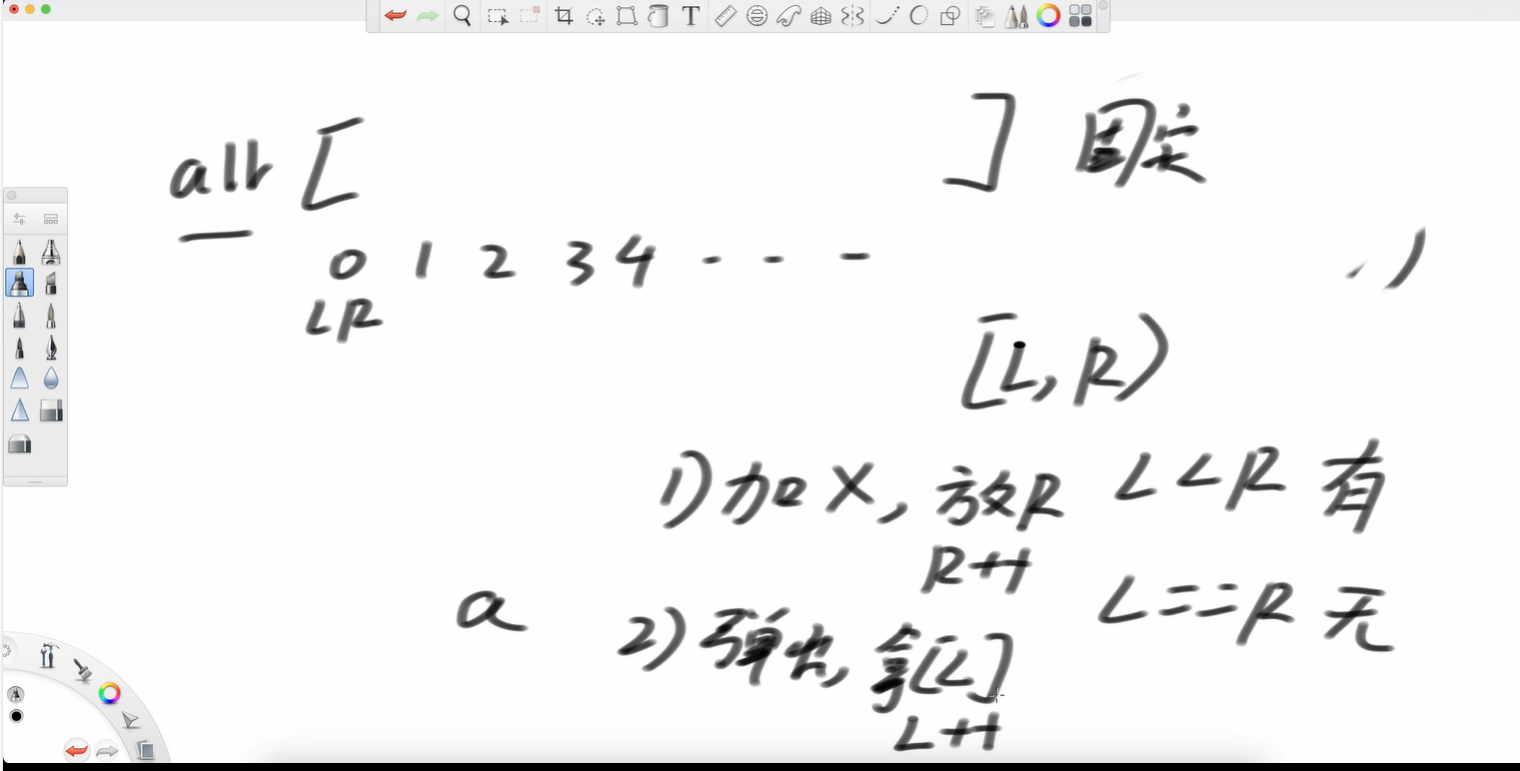 arr [ ] 固定
0 1 2 3 4 - - -
LR
[L, R)
1) 加 X, 放R L<R 有
R++
a L==R 无
2) 弹出, 拿[L]
L++